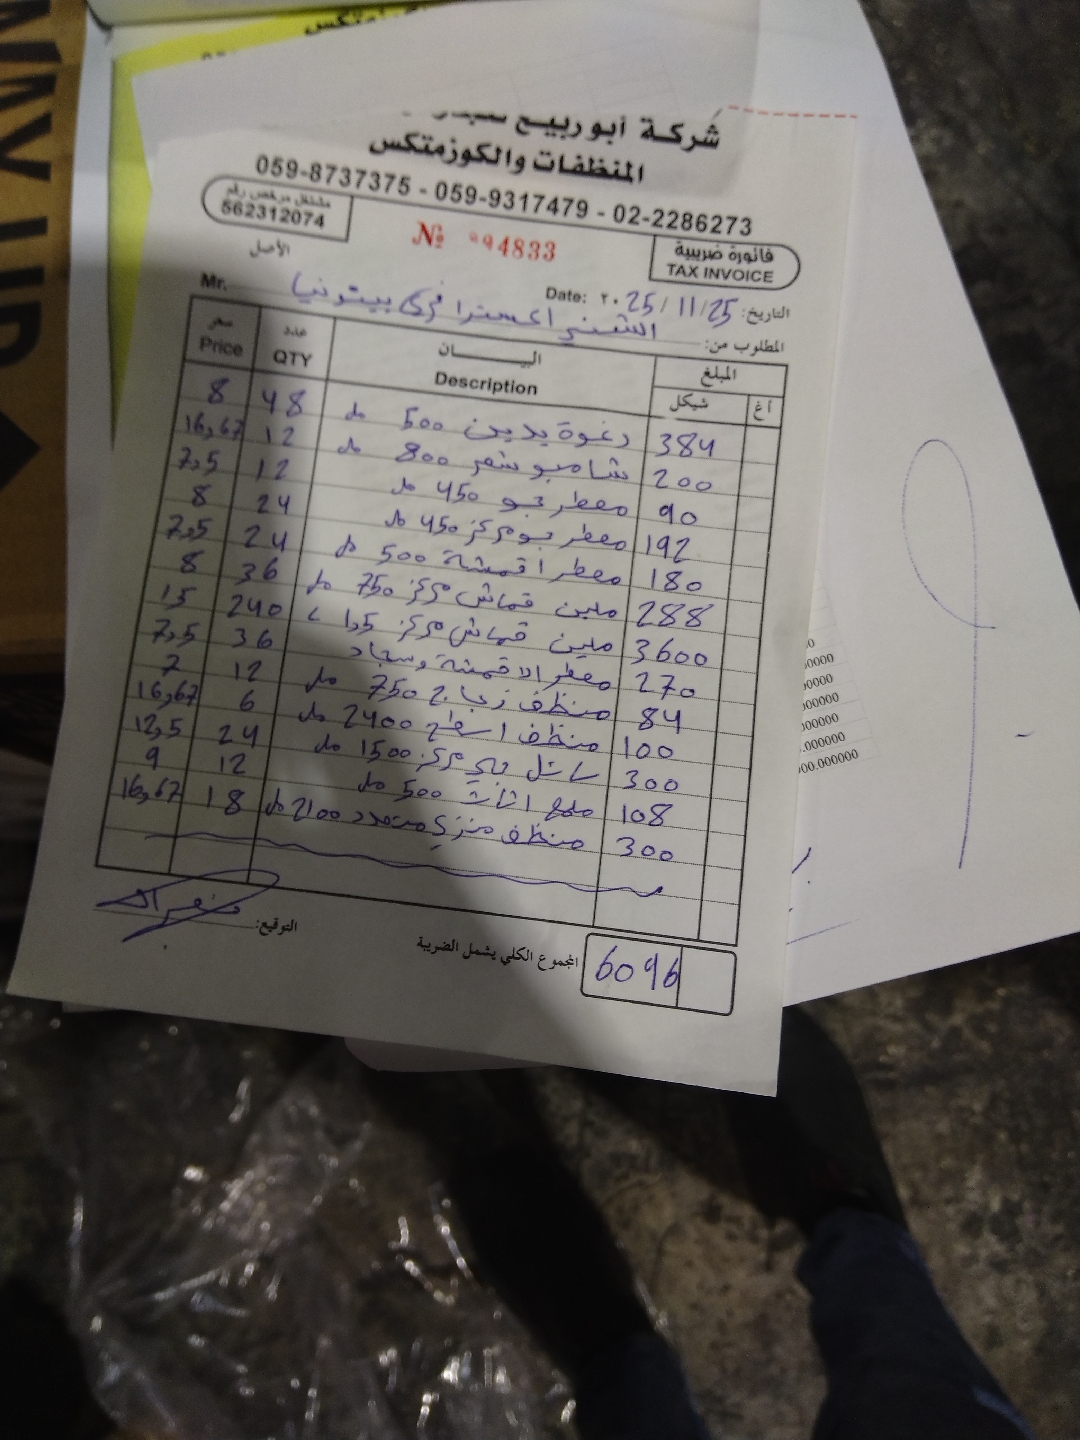 شركة أبو ربيع
المنظفات والكوزمتكس
059-8737375 - 059-9317479 - 02-2286273
مشتغل مرخص رقم
562312074
فاتورة ضريبية
TAX INVOICE
№ 94833
الأصل
التاريخ: 25/11/2025 Date:
المطلوب من: الشني اكسترا فرع بيتونيا Mr.
المبلغ البيـــان عدد سعر
أغ شيكل Description QTY Price
384 رغوة يدين 500 مل 48 8
200 شامبو شعر 800 مل 12 16,67
90 معطر جو 450 مل 12 7,5
192 معطر جو مركز 450 مل 24 8
180 معطر اقمشة 500 مل 24 7,5
288 ملين قماش مركز 750 مل 36 8
3600 ملين قماش مركز 1,5 L 240 15
270 معطر الاقمشة وسجاد 36 7,5
84 منظف زجاج 750 مل 12 7
100 منظف اسطح 2400 مل 6 16,67
300 سائل جلي مركز 1500 مل 24 12,5
108 ملمع اثاث 500 مل 12 9
300 منظف منزلي متعدد 2100 مل 18 16,67
المجموع الكلي يشمل الضريبة 6096
التوقيع: